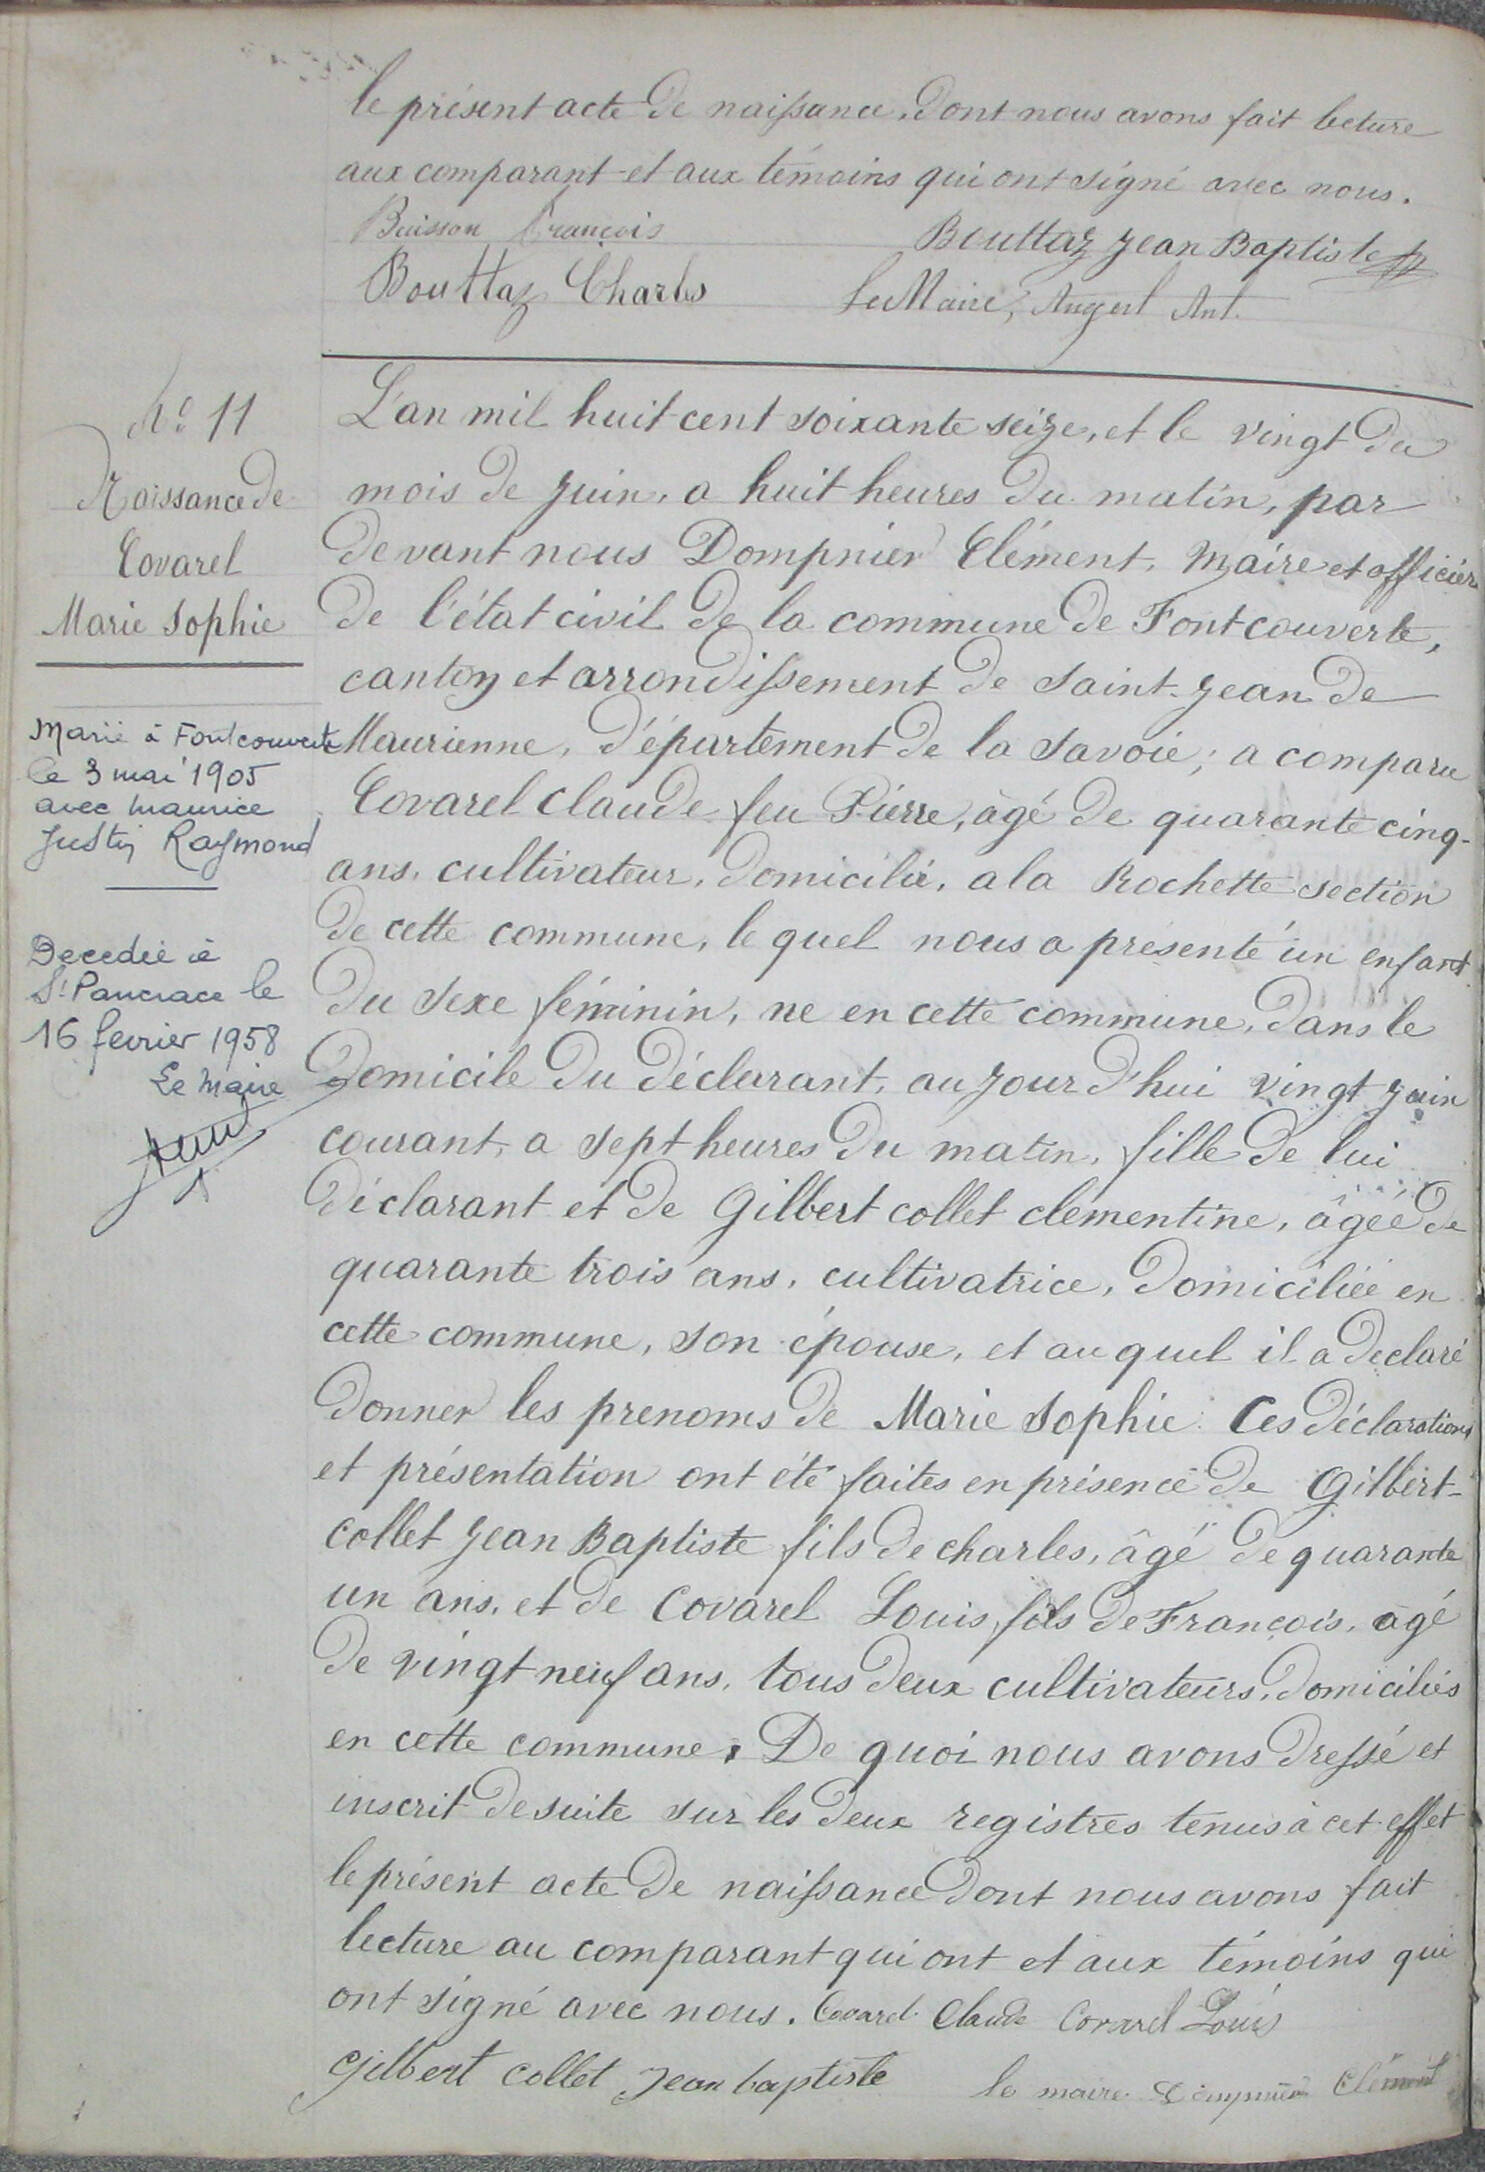 le présent acte de naissance, dont nous avons fait lecture
aux comparant et aux témoins qui ont signé avec nous.
Buisson François
Bouttaz Jean Baptiste
Bouttaz Charles
Le Maire, Ant.
N° 11
Naissance de
Covarel
Marie Sophie
Marié à Fontcouverte
le 3 mai 1905
avec Maurice
Justin Raymond
Decedée à
St Pancrace le
16 fevrier 1958
Le Maire
L'an mil huit cent soixante seize, et le vingt du
mois de Juin, a huit heures du matin, par
devant nous Dompnier Clément, Maire et officier
de l'état civil de la commune de Fontcouverte,
canton et arrondissement de Saint-Jean de
Maurienne, département de la Savoie; a comparu
Covarel Claude feu Pierre, âgé de quarante cinq
ans, cultivateur, domicilié, a la Rochette section
de cette commune, le quel nous a présenté un enfant
du sexe féminin, ne en cette commune, dans le
domicile du déclarant, au jour d'hui vingt Juin
courant, a sept heures du matin, fille de lui
déclarant et de Gilbert collet clementine, âgée de
quarante trois ans, cultivatrice, domiciliée en
cette commune, son épouse, et au quel il a declaré
donner les prenoms de Marie Sophie. Ces déclarations
et présentation ont été faites en présence de Gilbert-
collet Jean Baptiste fils de charles, âgé de quarante
un ans, et de Covarel Louis fils de François, agé
de vingt neuf ans, tous deux cultivateurs, domiciliés
en cette commune. De quoi nous avons dressé et
inscrit de suite sur les deux registres tenus à cet effet
le présent acte de naissance dont nous avons fait
lecture au comparant qui ont et aux témoins qui
ont signé avec nous. Covarel Claude Covarel Louis
Gilbert Collet Jean baptiste le maire Dompnier Clément